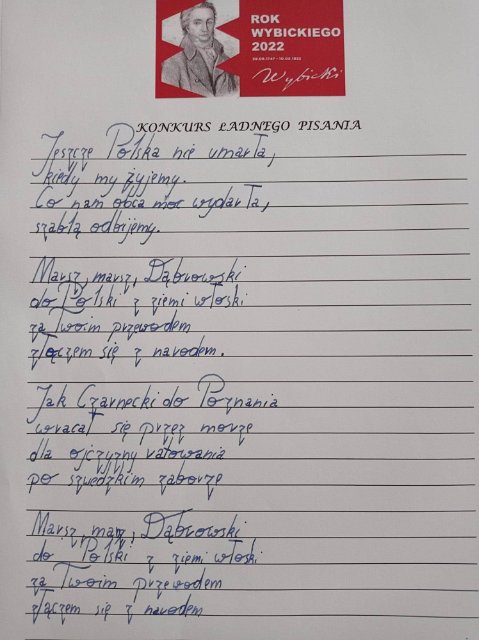 ROK
WYBICKIEGO
2022
Wybicki
KONKURS ŁADNEGO PISANIA
Jeszcze Polska nie umarła,
kiedy my żyjemy.
Co nam obca moc wydarła,
szablą odbijemy.
Marsz, marsz, Dąbrowski
do Polski z ziemi włoski
za Twoim przewodem
złączem się z narodem.
Jak Czarnecki do Poznania
wracał się przez morze
dla ojczyzny ratowania
po szwedzkim zaborze
Marsz, marsz, Dąbrowski
do Polski z ziemi włoski
za Twoim przewodem
złączem się z narodem